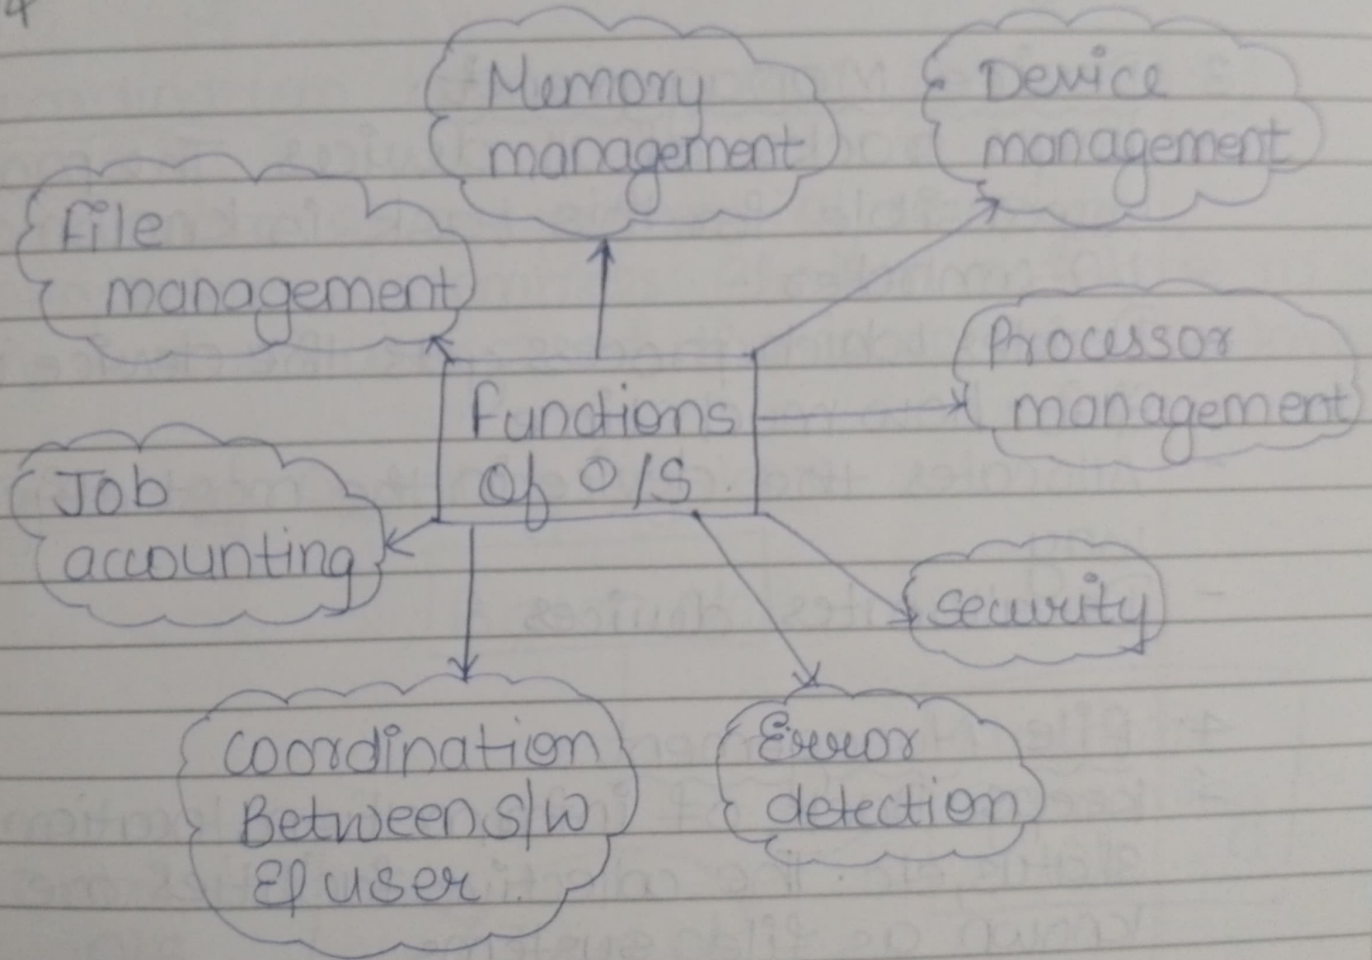 Memory
management
Device
management
File
management
Processor
management
Functions
of O/S
Job
accounting
security
coordination
Between S/W
& user
Error
detection